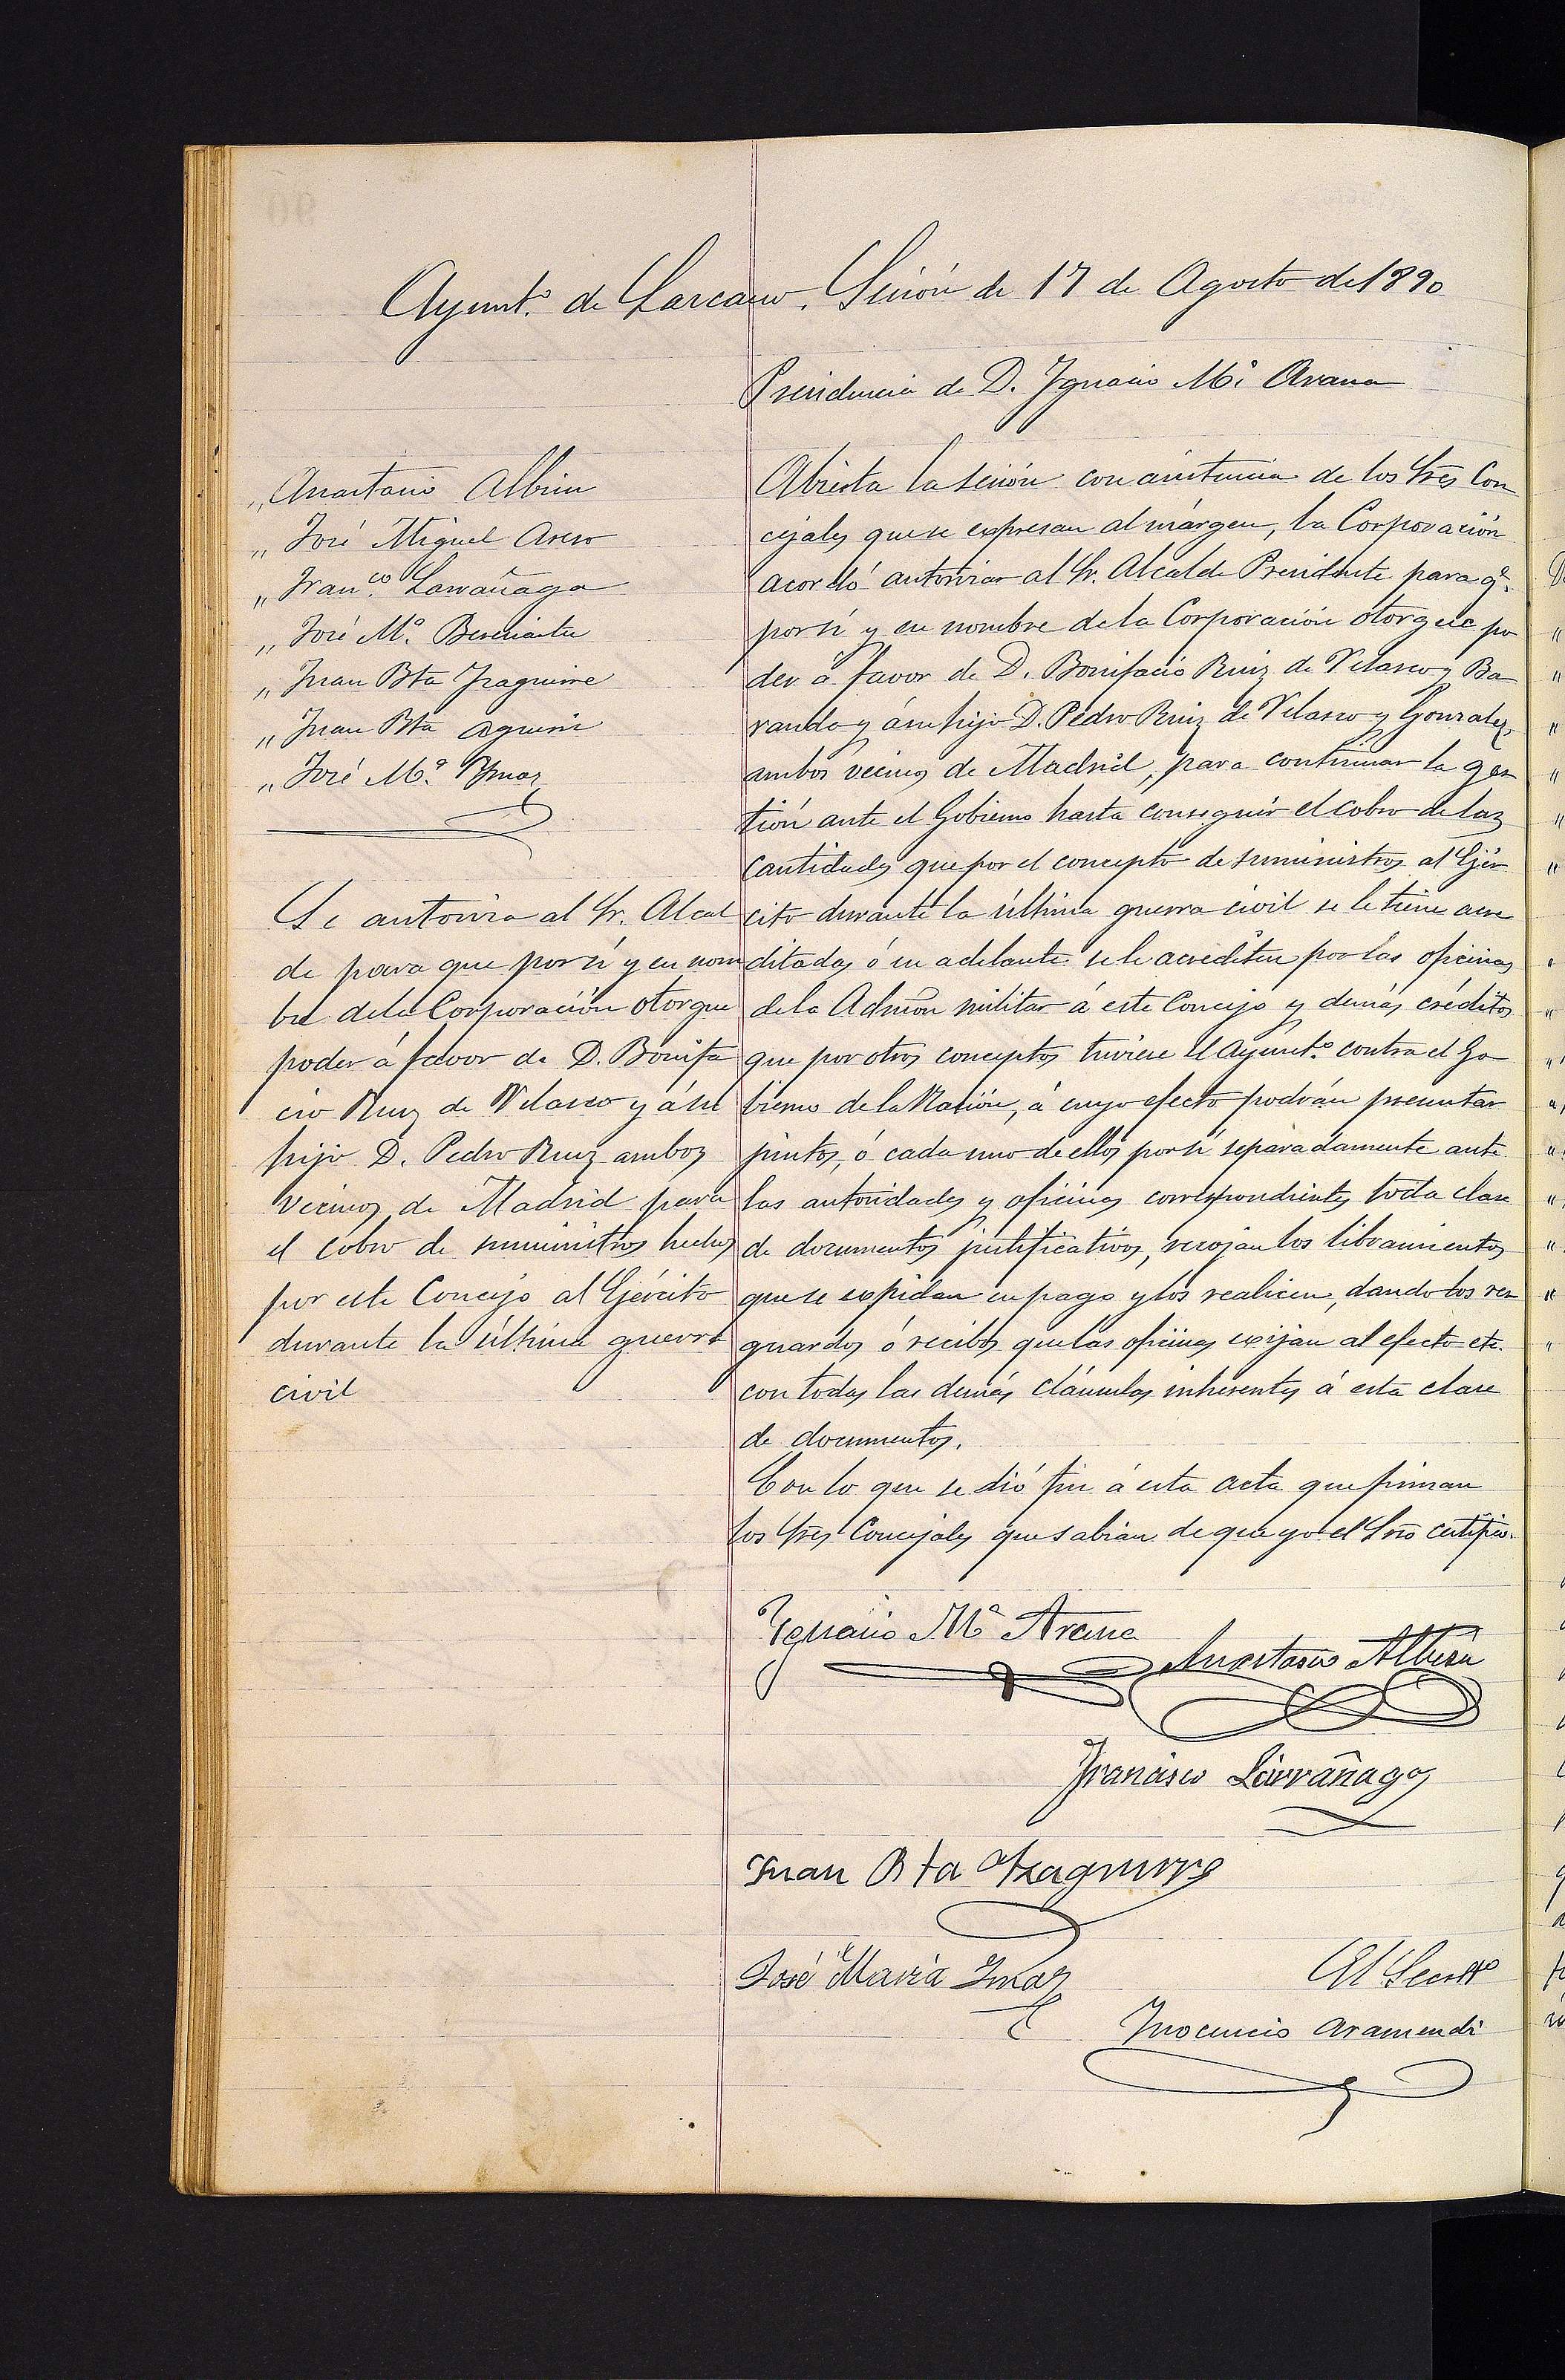 Ayunt.º de Lazcano. Sesión de 17 de Agosto de 1890
Presidencia de D. Ignacio Mª Arana
„ Anastasio Albisu
„ José Miguel Aseso
„ Fran.co Larrañaga
„ José Mª.
„ Juan Bta Izaguirre
„ Juan Bta Aguirre
„ José Mª. Ymaz
Se autoriza al Sr. Alcal
de para que por sí y en nom
bre dela Corporación otorgue
poder á favor de D. Bonifa
cio Ruiz de Velasco y á su
hijo D. Pedro Ruiz ambos
vecinos de Madrid para
el cobro de suministros hechos
por este Concejo al Ejército
durante la última guerra
civil
Abierta la sesión con asistencia de los Sres Con
cejales que se expresan al márgen, la Corporación
acordó autorizar al Sr. Alcalde Presidente para q.e
por sí y en nombre de la Corporación otorgue po
der á favor de D. Bonifacio Ruiz de Velasco y Ba
rando y á su hijo D. Pedro Ruiz de Velasco y Gonzalez,
ambos vecinos de Madrid, para continuar la ges
tión ante el Gobierno hasta conseguir el cobro de las
cantidades que por el concepto de suministros al Ejér
cito durante la última guerra civil se le tiene acre
ditadas ó en adelante se le acrediten por las oficinas
de la Admon militar á este Concejo y demás créditos
que por otros conceptos tuviese el Ayunt.º contra el Go
bierno de la Nación, á cuyo efecto podrán presentar
juntos, ó cada uno de ellos por sí separadamente ante
las autoridades y oficinas correspondientes toda clase
de documentos justificativos, recojan los libramientos
que se expidan en pago y los realicen, dando los res
guardos ó recibos que las oficinas exijan al efecto etc.
con todas las demás cláusulas inherentes á esta clase
de documentos.
Con lo que se dió fin á esta acta que firman
los Sres Concejales que sabian de que yo el Srio certifico.
Ygnacio Mª Arana
Anastasio Albisu
Francisco Larrañaga
Juan Bta Izaguirre
José María Imaz
El Secrtº
Inocencio Aramendi